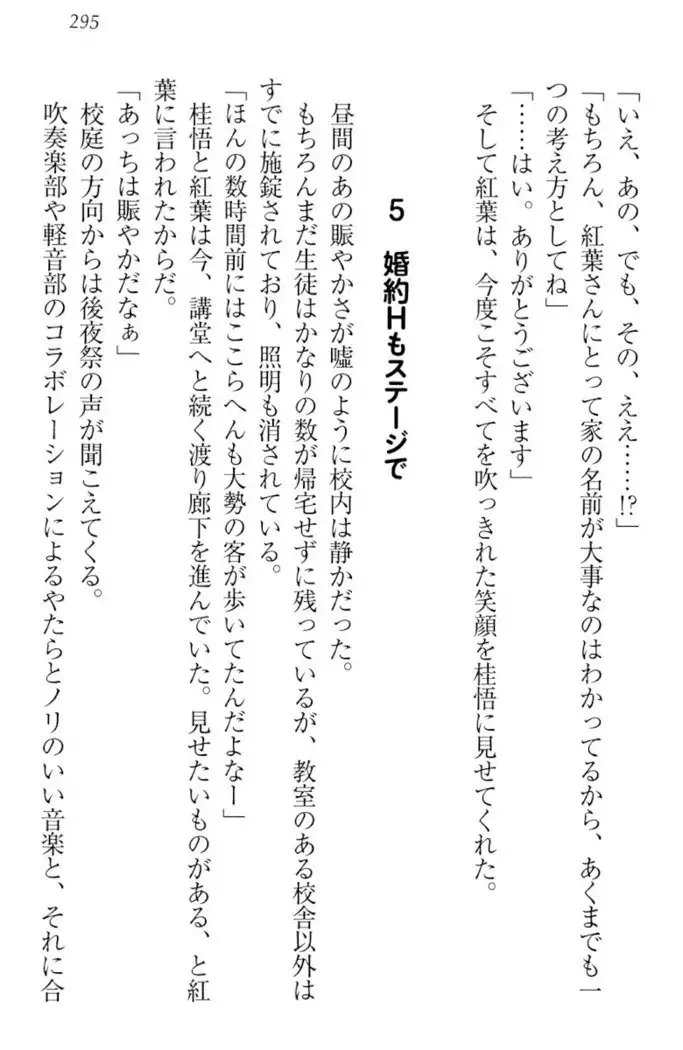 295
「いえ、あの、でも、その、ええ……!?」
「もちろん、紅葉さんにとって家の名前が大事なのはわかってるから、あくまでも一
つの考え方としてね」
「……はい。ありがとうございます」
そして紅葉は、今度こそすべてを吹っきれた笑顔を桂悟に見せてくれた。
5　婚約Hもステージで
昼間のあの賑やかさが嘘のように校内は静かだった。
もちろんまだ生徒はかなりの数が帰宅せずに残っているが、教室のある校舎以外は
すでに施錠されており、照明も消されている。
「ほんの数時間前にはここらへんも大勢の客が歩いてたんだよなー」
桂悟と紅葉は今、講堂へと続く渡り廊下を進んでいた。見せたいものがある、と紅
葉に言われたからだ。
「あっちは賑やかだなぁ」
校庭の方向からは後夜祭の声が聞こえてくる。
吹奏楽部や軽音部のコラボレーションによるやたらとノリのいい音楽と、それに合